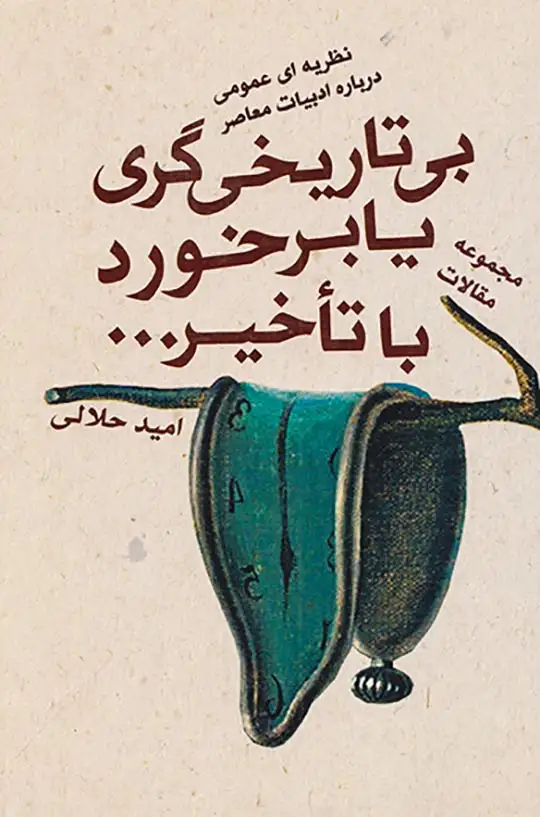 نظریه ای عمومی
درباره ادبیات معاصر
بی‌تاریخی‌گری
یا برخورد
با تأخیر...
مجموعه
مقالات
امید حلالی
3
4
5
6